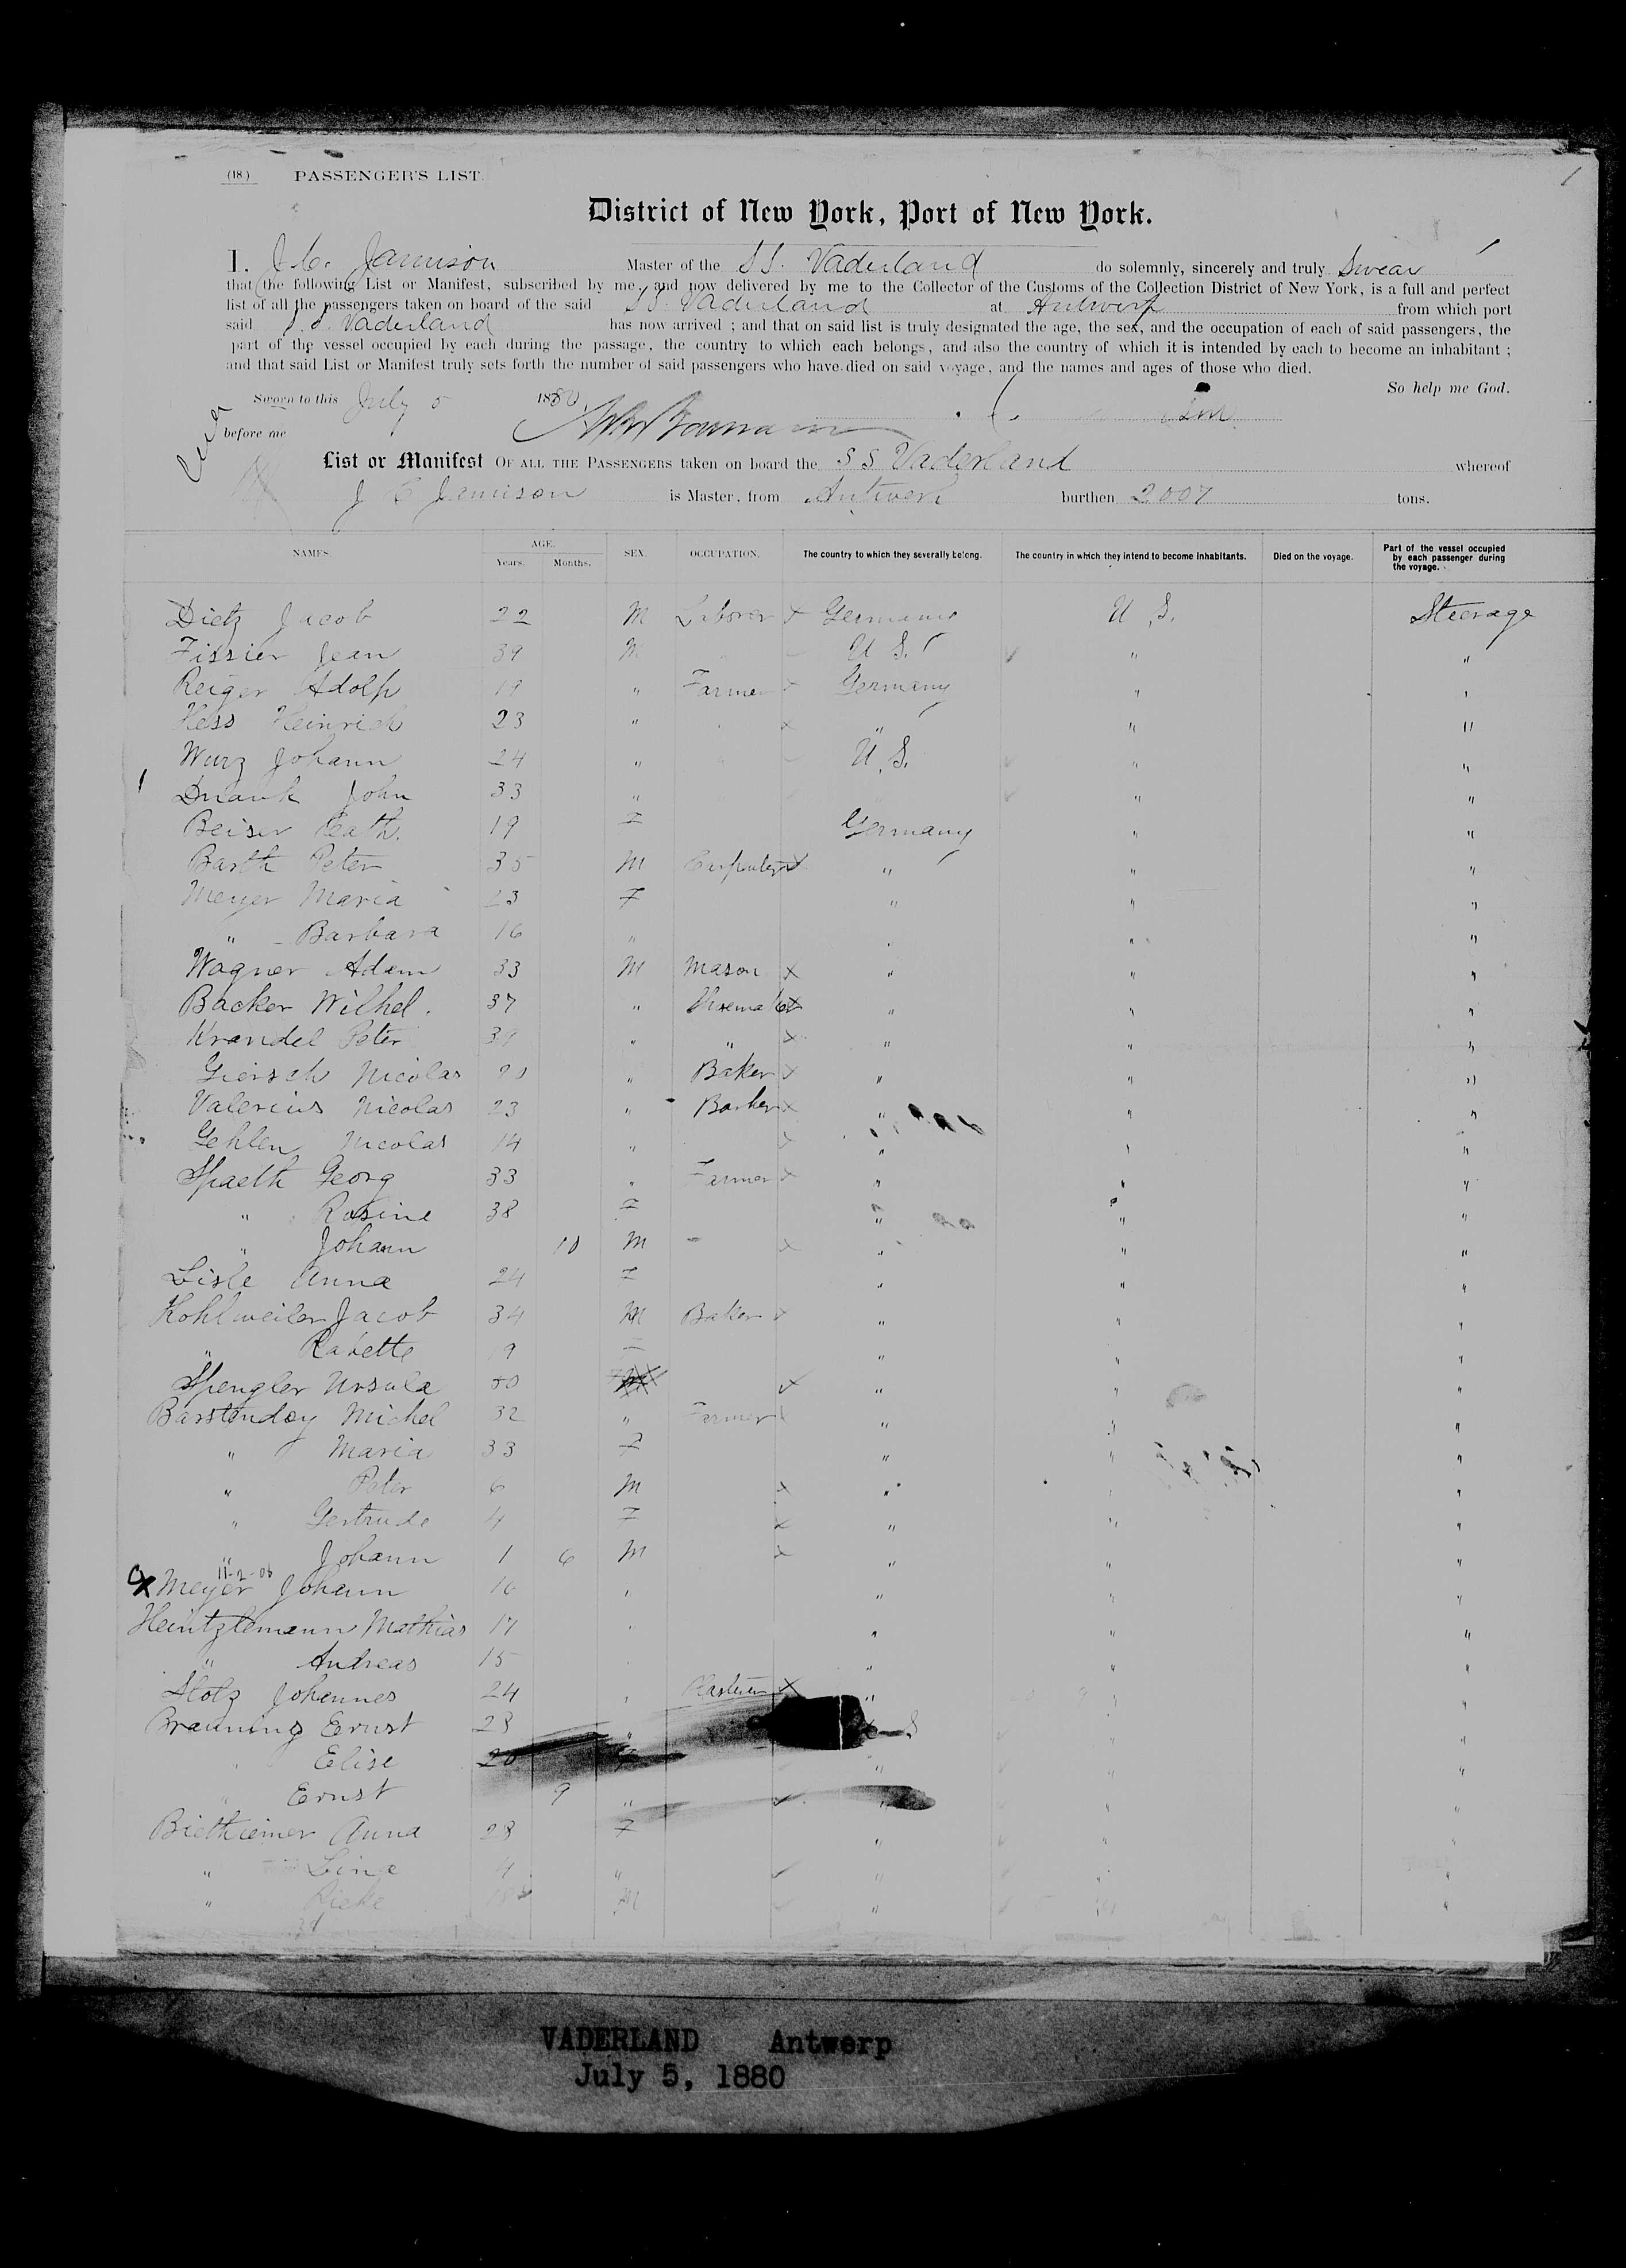 (18.) PASSENGER'S LIST.
District of New York, Port of New York.
I. J. C. Jamison Master of the SS. Vaderland do solemnly, sincerely and truly Swear
that the following List or Manifest, subscribed by me, and now delivered by me to the Collector of the Customs of the Collection District of New York, is a full and perfect
list of all the passengers taken on board of the said SS. Vaderland at Antwerp from which port
said S.S. Vaderland has now arrived ; and that on said list is truly designated the age, the sex, and the occupation of each of said passengers, the
part of the vessel occupied by each during the passage, the country to which each belongs, and also the country of which it is intended by each to become an inhabitant ;
and that said List or Manifest truly sets forth the number of said passengers who have died on said voyage, and the names and ages of those who died.
So help me God.
Sworn to this July 5 1880
before me
List or Manifest OF ALL THE PASSENGERS taken on board the SS Vaderland whereof
J C Jamison is Master, from Antwerp burthen 2007 tons.
NAMES. AGE. Years. Months. SEX. OCCUPATION. The country to which they severally belong. The country in which they intend to become inhabitants. Died on the voyage. Part of the vessel occupied by each passenger during the voyage.
Dietz Jacob 22 M Laborer x Germany U S. Steerage
Fissier Jean 39 M U S. " "
Reiger Adolf 19 " Farmer x Germany " "
Hess Heinrich 23 " x " " "
Wurz Johann 24 " U.S. " "
John 33 " " "
Beiser Kath. 19 F Germany " "
Barth Peter 35 M Carpenter x " " "
Meyer Maria 23 F " " "
" Barbara 16 " " " "
Wagner Adam 33 M Mason x " " "
Backer Wilhel. 37 " Shoemaker x " " "
Krandel Peter 39 " " x " " "
Giersch Nicolas 20 " Baker x " " "
Valerius Nicolas 23 " x " " "
Gehlen Nicolas 14 " x " " "
Spaeth Georg 33 " Farmer x " " "
" Rosine 38 F " " "
" Johann 10 M - x " " "
Lisle Anna 24 F " " "
Kohlweiler Jacob 34 M Baker x " " "
" Babette 19 F " " "
Spengler Ursula 50 x " " "
Barstendey Michel 32 " Farmer " " "
" Maria 33 F " " "
" Peter 6 M x " " "
" Gertrude 4 F x " " "
" Johann 1 6 M x " " "
11-2-06
x Meyer Johann 16 " " " "
Heintzlemann Mathias 17 " " " "
" Andreas 15 " " " "
Stolz Johannes 24 " x " " "
Brauning Ernst 28 " S " "
" Elise 20 F " " "
" Ernst 9 " " " "
Biethiemer Anna 28 F " " "
" Lina 4 " " " "
" M " "
VADERLAND Antwerp
July 5, 1880